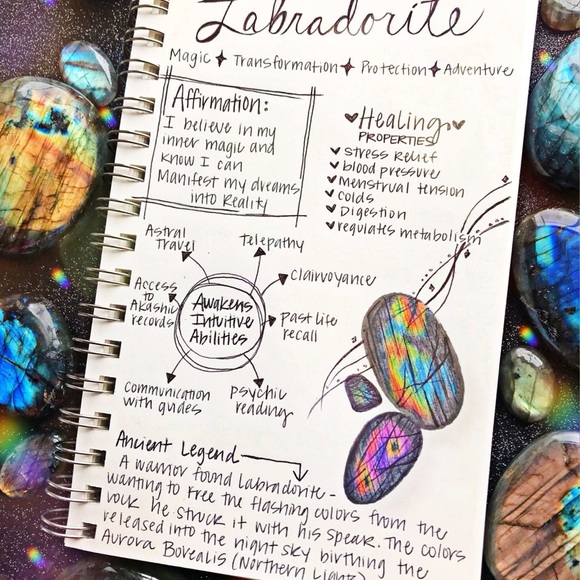 Labradorite
Magic ✦ Transformation ✦ Protection ✦ Adventure
Affirmation:
I believe in my
inner magic and
know I can
Manifest my dreams
into Reality
Healing
PROPERTIES
stress relief
blood pressure
menstrual tension
colds
Digestion
regulates metabolism
Astral
Travel
Telepathy
Clairvoyance
Access
to
Akashic
records
Awakens
Intuitive
Abilities
Past life
recall
Communication
with guides
Psychic
reading
Ancient Legend
A warrior found Labradorite -
wanting to free the flashing colors from the
rock he struck it with his spear. The colors
released into the night sky birthing the
Aurora Borealis (Northern Lights)